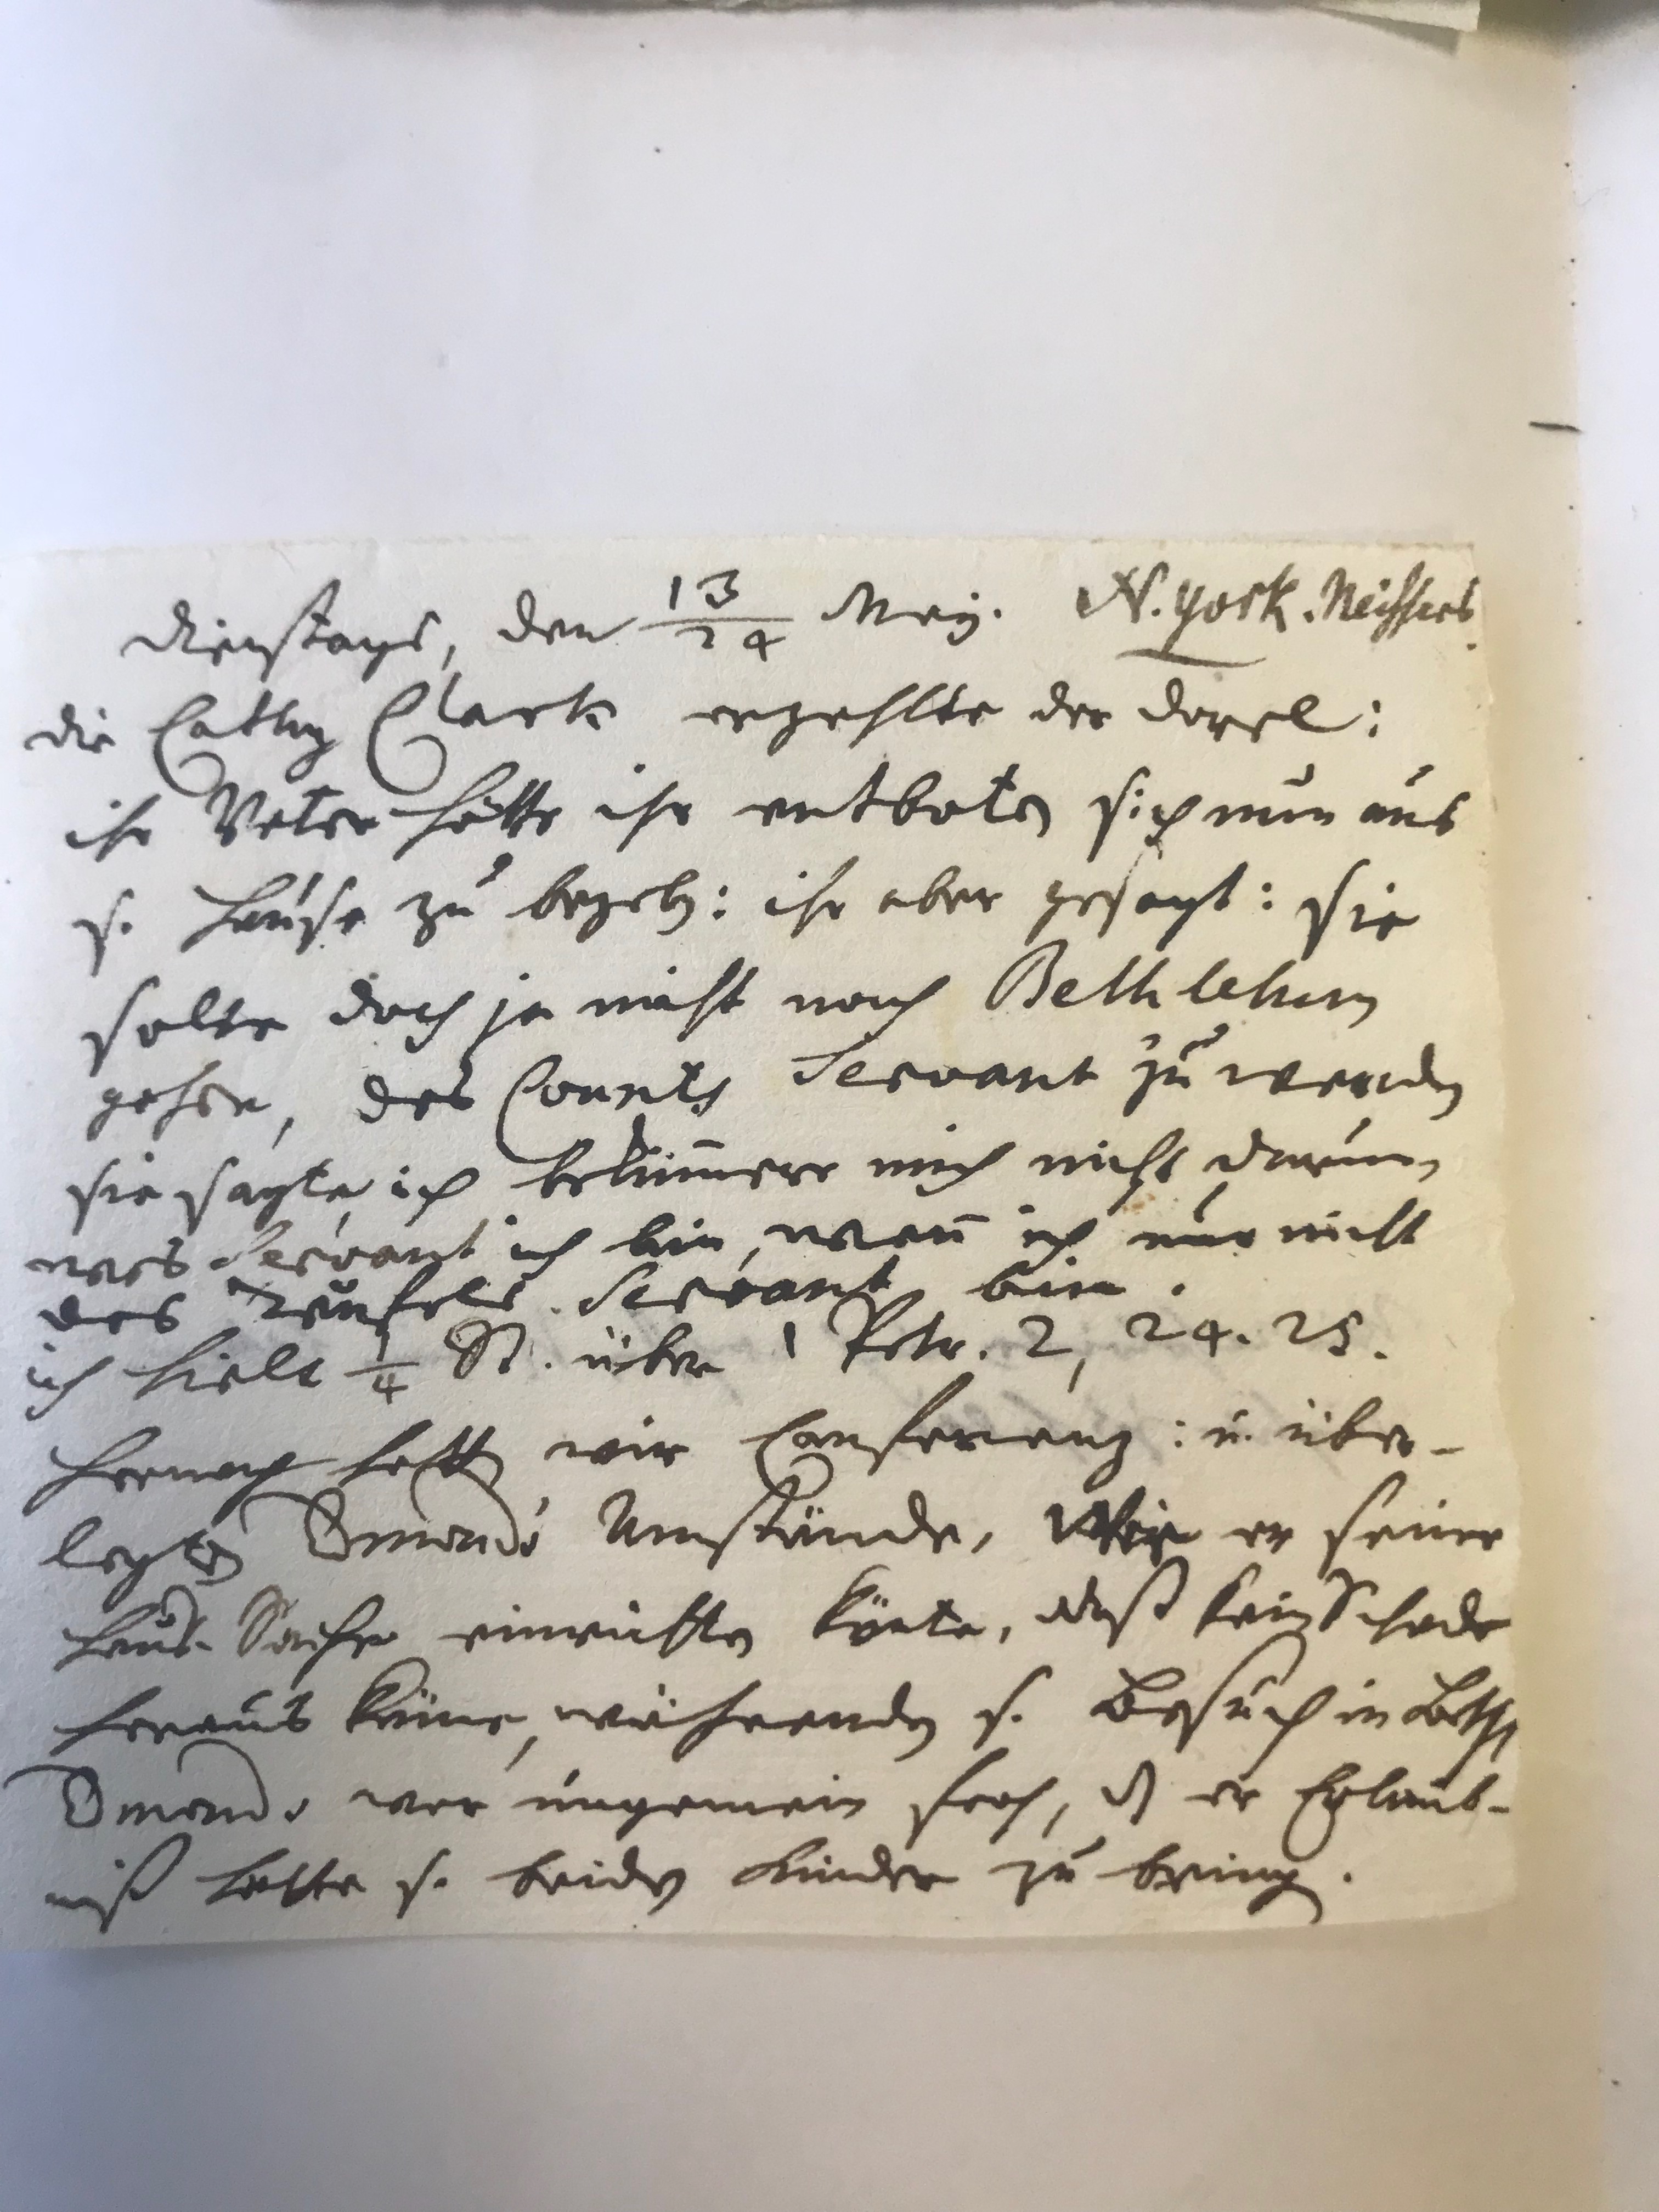 Dienstags, den 13/24 Mey. N. york. Neissers
die Cathy Clark erzehlte der Dorel:
ihr Vater hätte ihr entboten sich nun aus
s. Hause zu begeben: ihr aber gesagt: sie
solte doch ja nicht nach Bethlehem
gehen, des Counts Servant zu werden
sie sagte, ich bekümere mich nicht darum,
wes Servant ich bin, wen ich nur nicht
des Teufels Servant bin.
ich hielt 1/4 St. über 1 Petr. 2, 24. 25.
hernach hatten wir Conferenz: u. über-
legten Omends Umstände, wie er seine
Haus-Sache einrichten könte, daß kein Schade
heraus käme, währenden s. Besuch in Beth
Omends war ungemein froh, dß er Erlaub-
niß hatte s. beiden Kinder zu bringen.